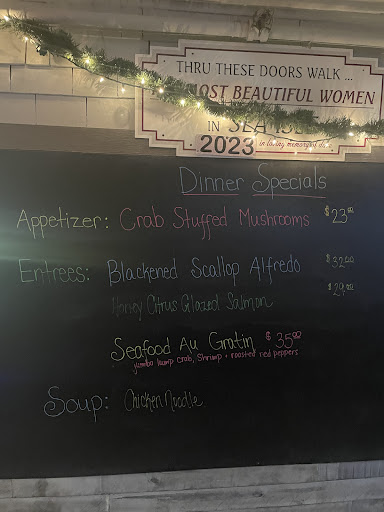 THRU THESE DOORS WALK ...
MOST BEAUTIFUL WOMEN
IN SEA ISLE
2023 in loving memory of
Dinner Specials
Appetizer: Crab Stuffed Mushrooms $23.00
Entrees: Blackened Scallop Alfredo $32.00
Honey Citrus Glazed Salmon $29.00
Seafood Au Gratin $35.00
jumbo lump crab, shrimp + roasted red peppers
Soup: Chicken Noodle